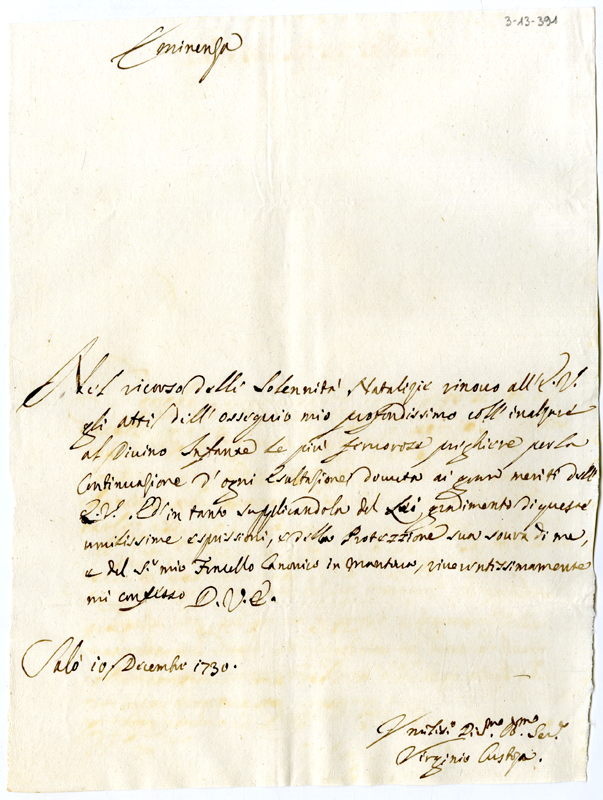 3-13-391
Eminenza
Nel ricorso delle Solennità Natalizie rinovo all'E.V.
gli atti dell'ossequio mio profondissimo coll'inalzare
al Divino Infante le più fervorose preghiere per la
Continuazione d'ogni Esaltazione dovuta ai gran meriti dell'
E.V. Ed in tanto supplicandola del gradimento di queste
umilissime espressioni, e della Protezzione sua sovra di me,
e del Sr mio Fratello Canonico in Mantova, riverentissimamente
mi confesso D.V.E.
Salò 10 Decembre 1730.
Umilissº Devmo Obmo Serr
Virginio